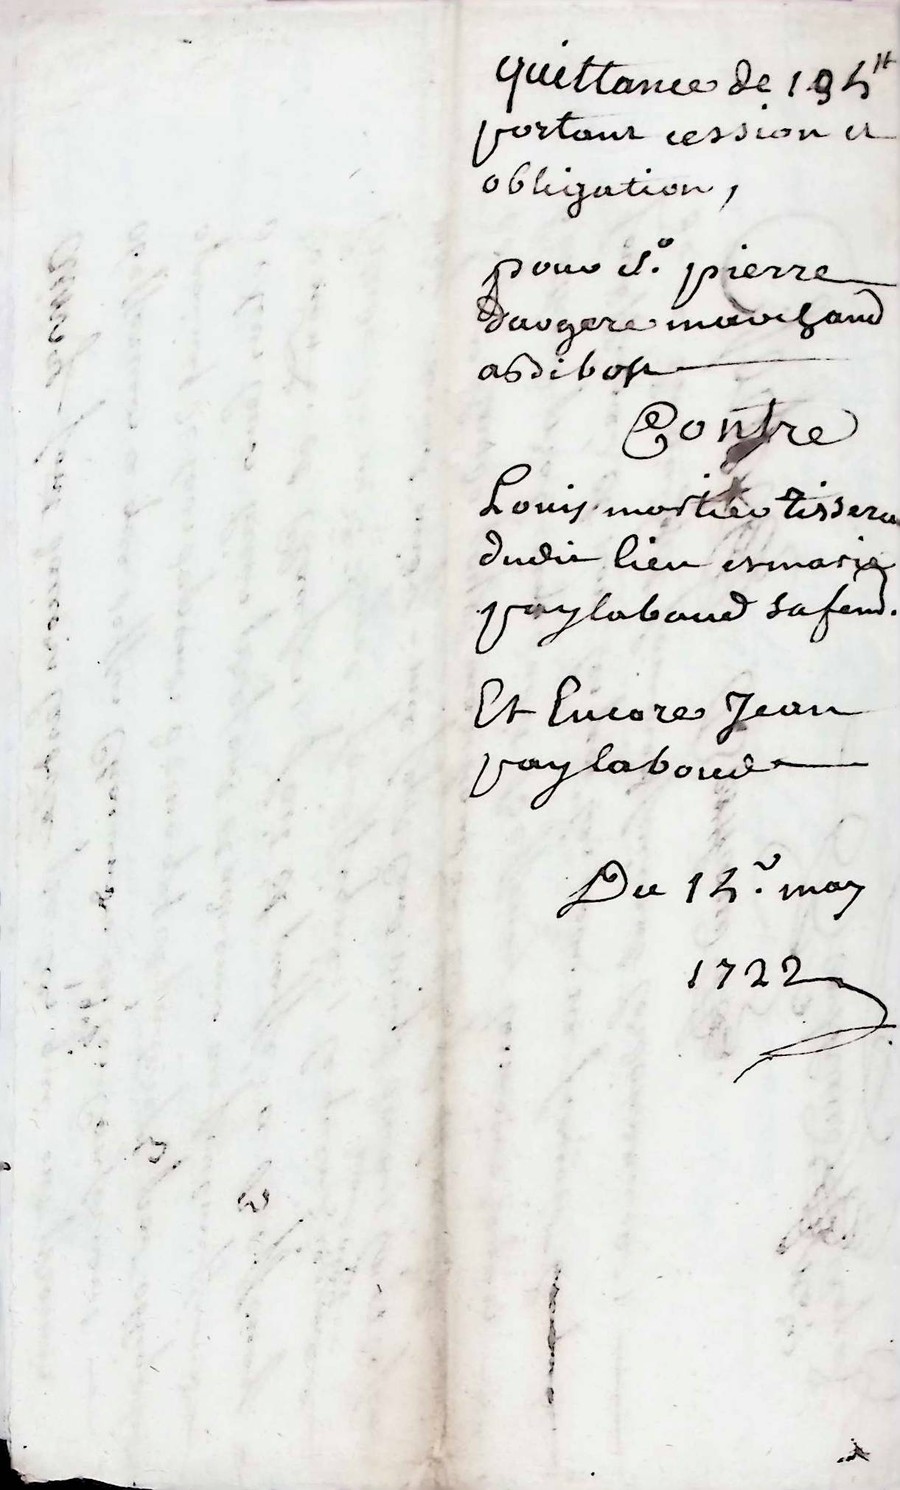 quittance de 194ᵗᵗ
portant cession et
obligation,
pour sʳ. pierre
daugere marchand
Contre
Louis mortier tissera
dudit lieu et marie
paylaboud sa fem.
Et Encore Jean
paylaboud
Du 14ᵉ. may
1722